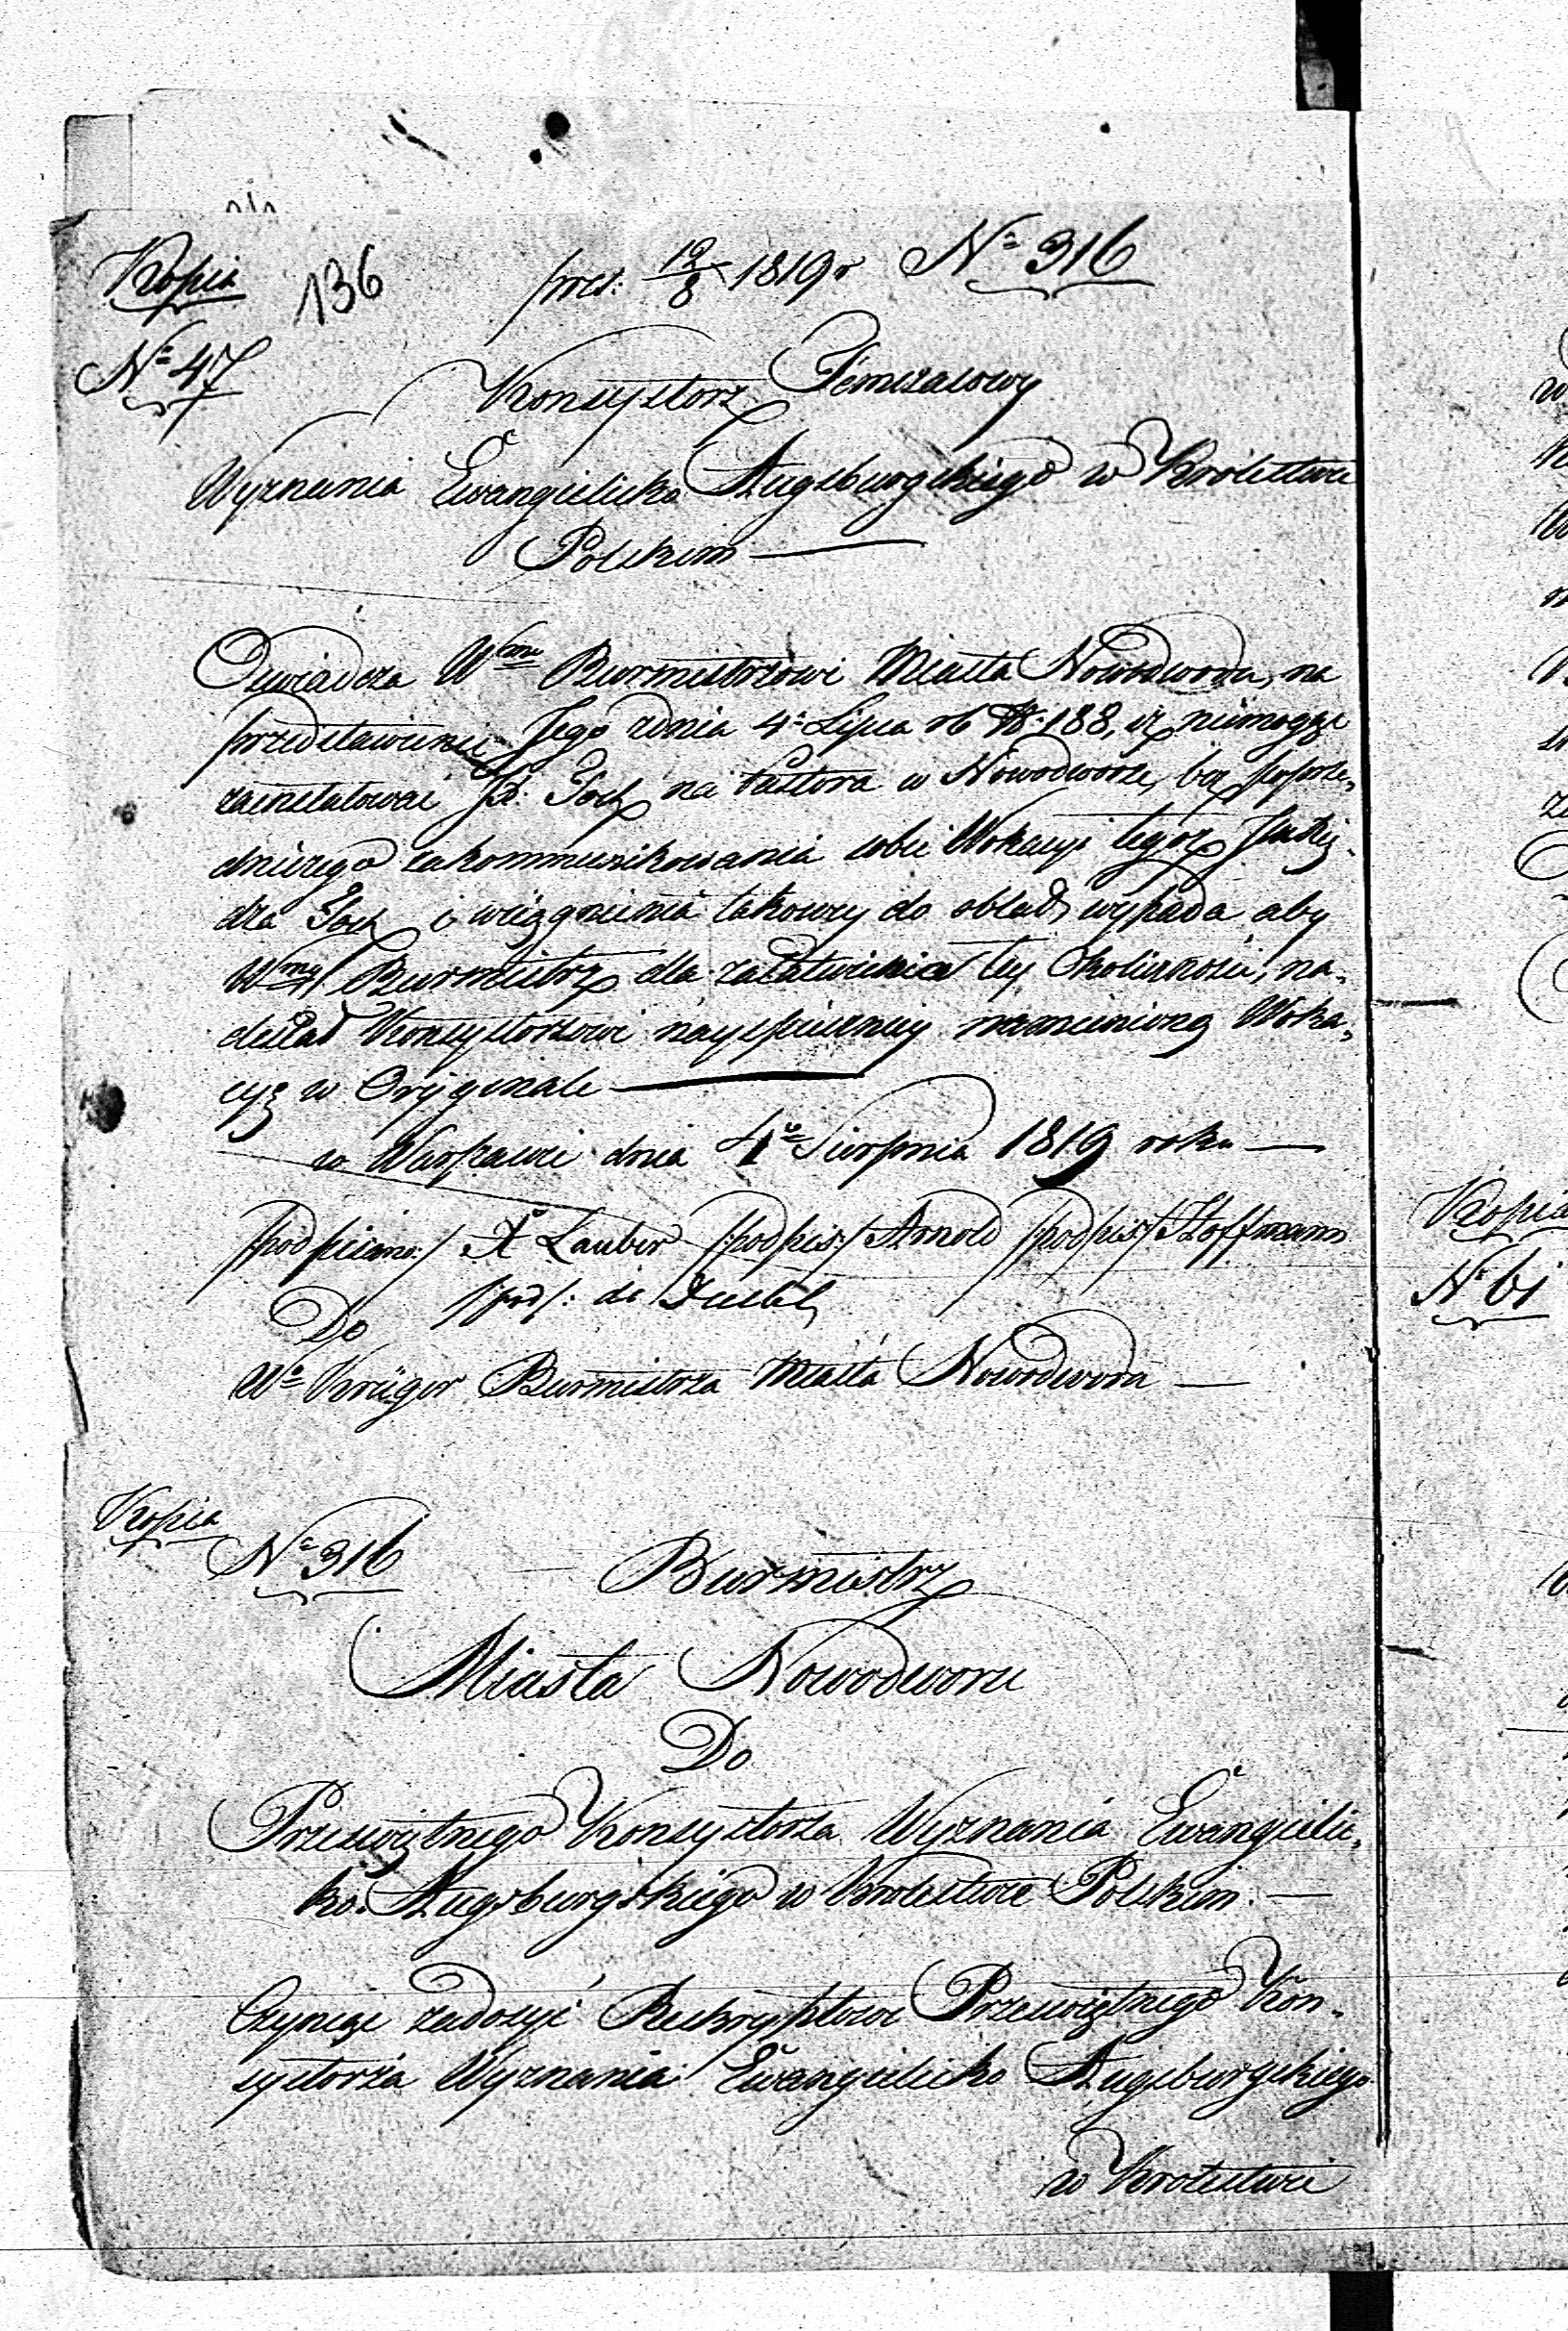 Kopia 136 pret: 12/8 1819 r Nº 316
Nº 47
Konsystorz Temczasowy
Wyznania Ewangielicko Augsburgskiego w Krolestwie
Polskim
Oswiadcza Wmu Burmistrzowi Miasta Nowodworu, na
przedstawienie Jego z dnia 4º Lipca rb N: 188, iż niemogąc
zainstalować na Pastora w Nowodworze, bez poprze-
dniczego zakommunikowania sobie Wokacyi tegoż Xię-
dza i wciągnienia takowey do oblad, wypada aby
Wmy Burmistrz dla załatwienia tey Okoliczności, na-
desłał Konsystorzowi nayspieszniey rzmienioną Woka-
cyą w Oryginale
w Warszawie dnia 4º Sierpnia 1819 roku
/podpisano:/ X Lauber /podpis:/ Arnold /podpis:/ Hoffmann
/pod/: de
Do
Wº Krüger Burmistrza Miasta Nowodworu
Kopia
Nº 316 Burmistrz
Miasta Nowodworu
Do
Przeświętnego Konsystorza Wyznania Ewangielic-
ko Augsburgskiego w Krolestwie Polskim.
Czyniąc zadosyć Reskryptowi Przeświętnego Kon-
systorza Wyznania Ewangelicko Augsburgskiego
w Krolestwie
Kopia
Nº 61